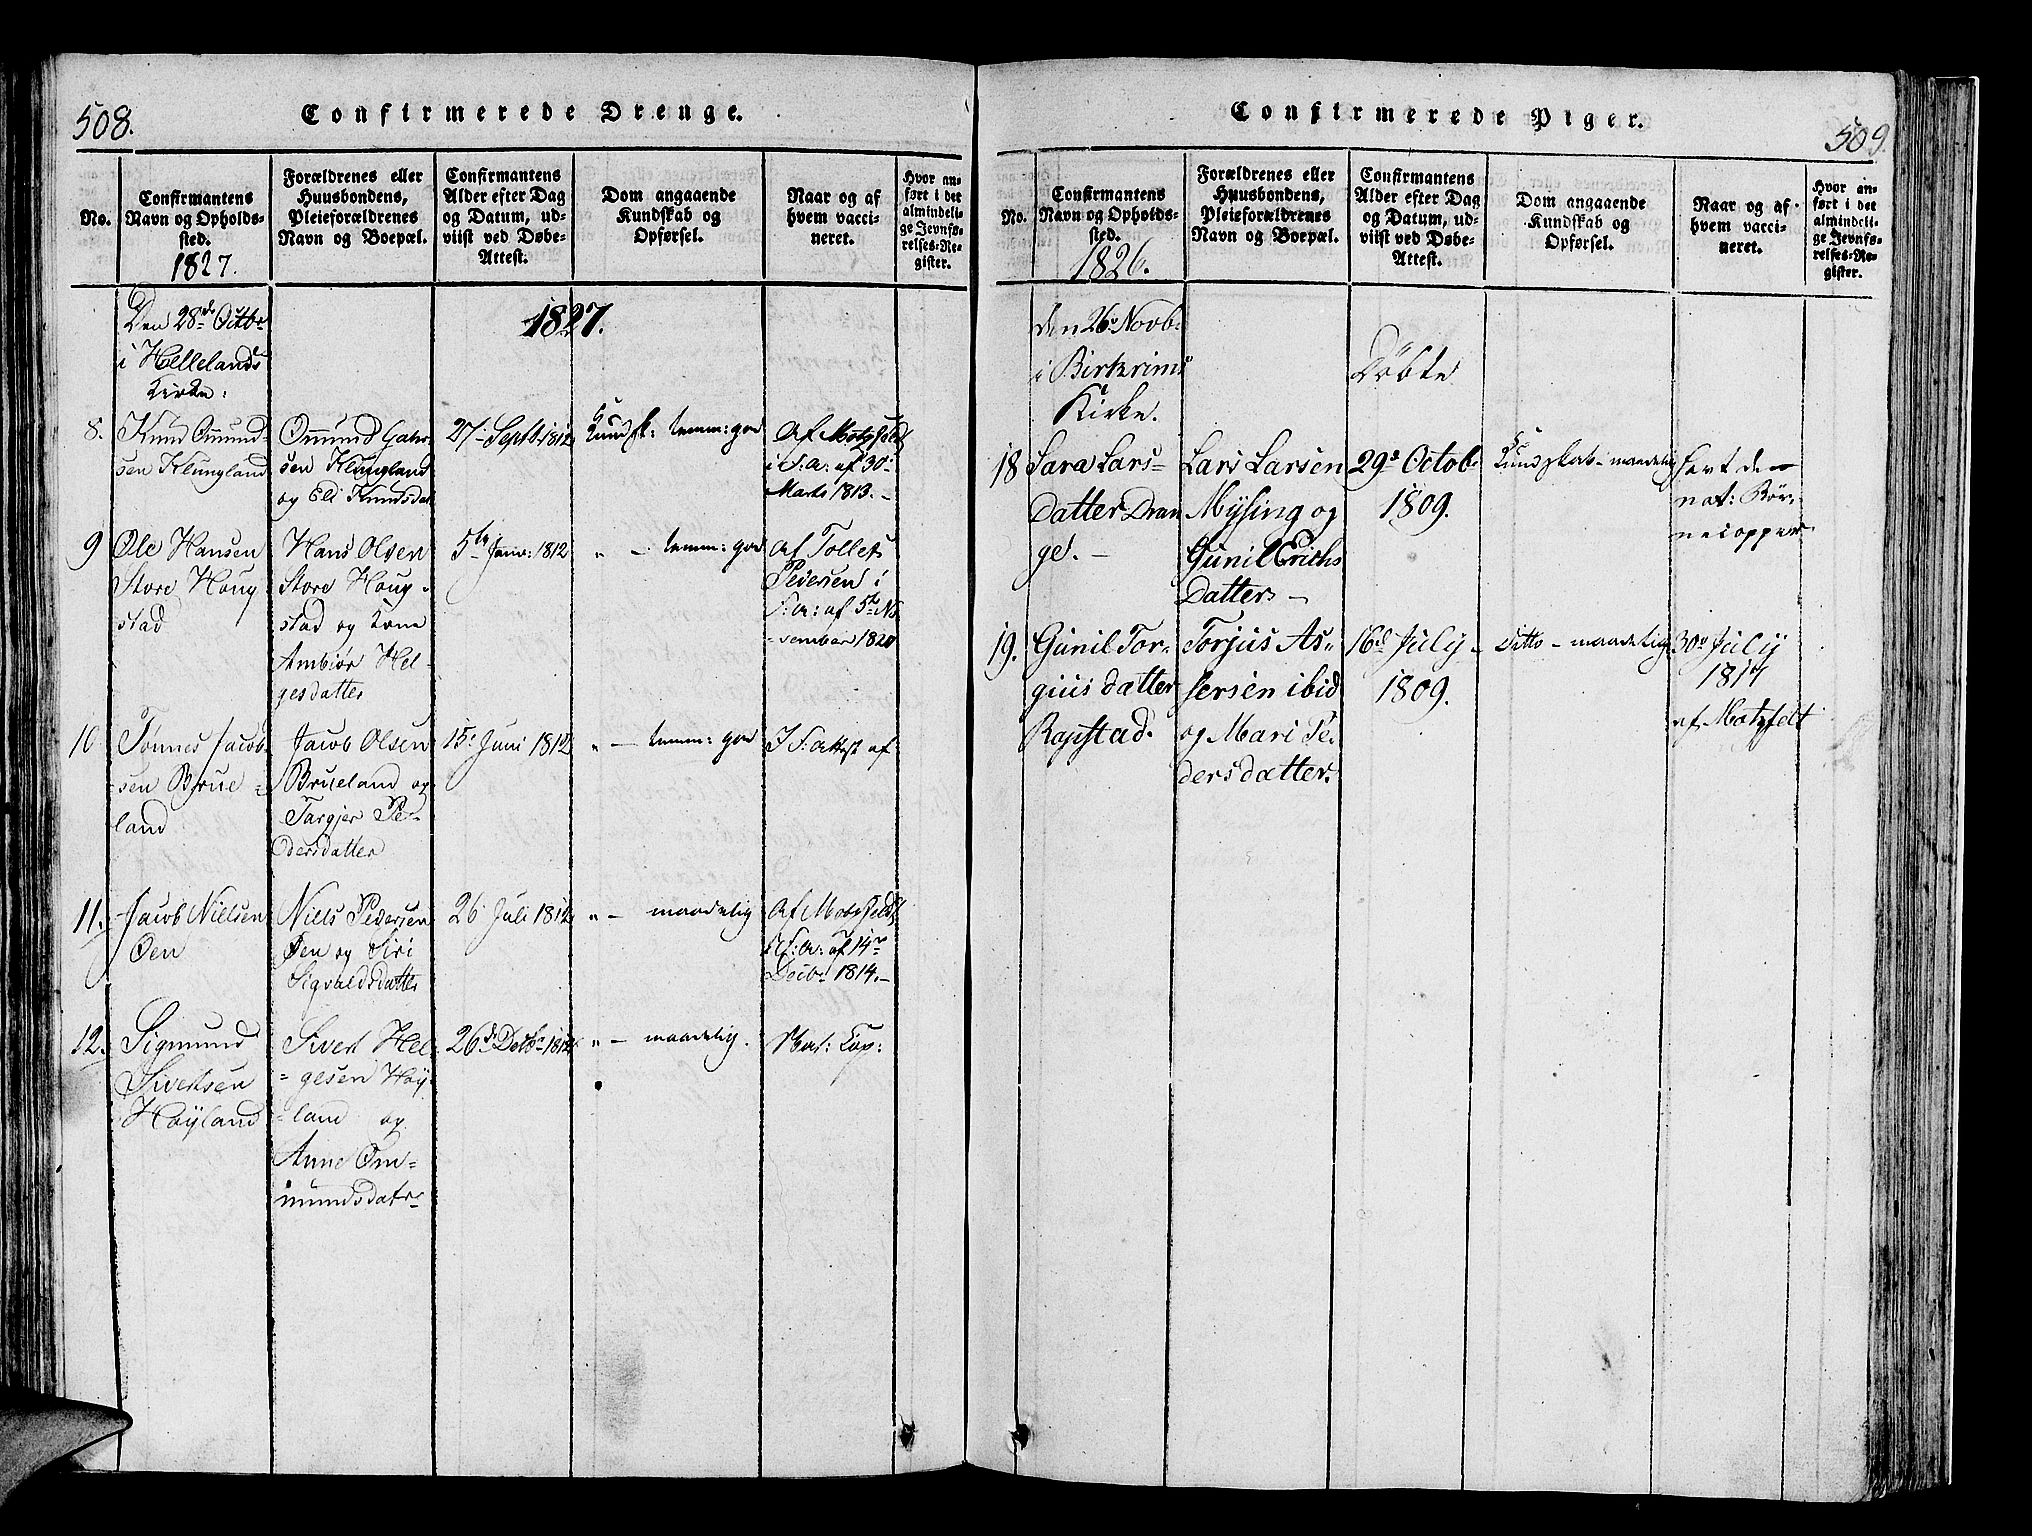 508.
Confirmerede Drenge.
No.
Confirmantens
Navn og Opholds-
sted.
1827.
Forældrenes eller
Huusbondens,
Pleieforældrenes
Navn og Boepæl.
Confirmantens
Alder efter Dag
og Datum, ud-
viist ved Døbe-
Attest.
Dom angaaende
Kundskab og
Opførsel.
Naar og af
hvem vacci-
neret.
Hvor an-
ført i det
almindeli-
ge Jevnfø-
relses-Re-
gister.
Den 28de Octbr
i Hellelands
Kirke:
1827.
8.
Knud Omund-
sen Klungland
Omund Gabr-
sen Klungland
og Eli Knudsdat
27 Septb. 1812
Kundsk: temm: god
Af Motzfeldt
i S: a: af 30
Marts 1813. -
9
Ole Hansen
Store Houg
stad
Hans Olsen
Store Houg-
stad og Kone
Ambiør Hel-
gesdatter
5te Janv: 1812
" - temm: god
Af Tollef
Pedersen i
S: a: af 5te No
=vember 1820
10
Tønnes Jacob-
sen Brue=
land
Jacob Olsen
Brueland og
Targjer Pe-
dersdatter
15 Juni 1812
" - temm: god
I S: Attest af
11.
Jacob Nielsen
Øen
Niels Pedersen
Øen og Siri
Sigvaldsdatter
26 Juli 1812
" - maadelig
Af Motzfeldt
i S: a: af 14de
Decbr 1814. -
12.
Sigmund
Sivertsen
Høyland
Sivert Hel
=gesen Høy
=land og
Anne Om=
mundsdatr
26de Decbr 1812
" - maadelig.
Nat: Kop:
Confirmerede Piger.
509.
No.
Confirmantens
Navn og Opholds-
sted.
1826.
Forældrenes eller
Huusbondens,
Pleieforældrenes
Navn og Boepæl.
Confirmantens
Alder efter Dag
og Datum, ud-
viist ved Døbe-
Attest.
Dom angaaende
Kundskab og
Opførsel.
Naar og af
hvem vacci-
neret.
Hvor an-
ført i det
almindeli-
ge Jevnfø-
relses-Re-
gister.
den 26 Novb.
i Birkrims
Kirke.
Døbte
18
Sara Lars=
Datter Dran
ge. -
Lars Larsen
Mysing og
Gunil Erichs
Datter -
29 Octob.
1809.
Kundskab - maadelig
havt de
nat: Bør-
necopper
19.
Gunil Tor=
gius datter
Rapstad.
Torjus As=
sersen ibid
og Mari Pe-
ders datter.
16d July -
1809.
ditto - maadelig
30 July
1814
af Motzfelt